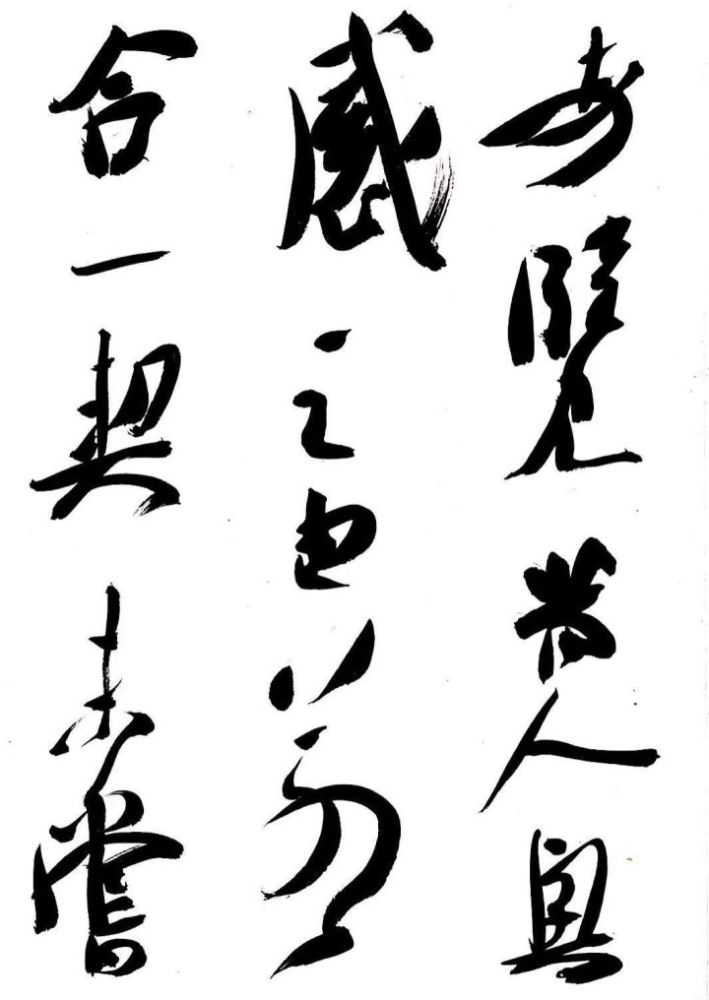 每覽昔人興
感之由若
合一契未嘗